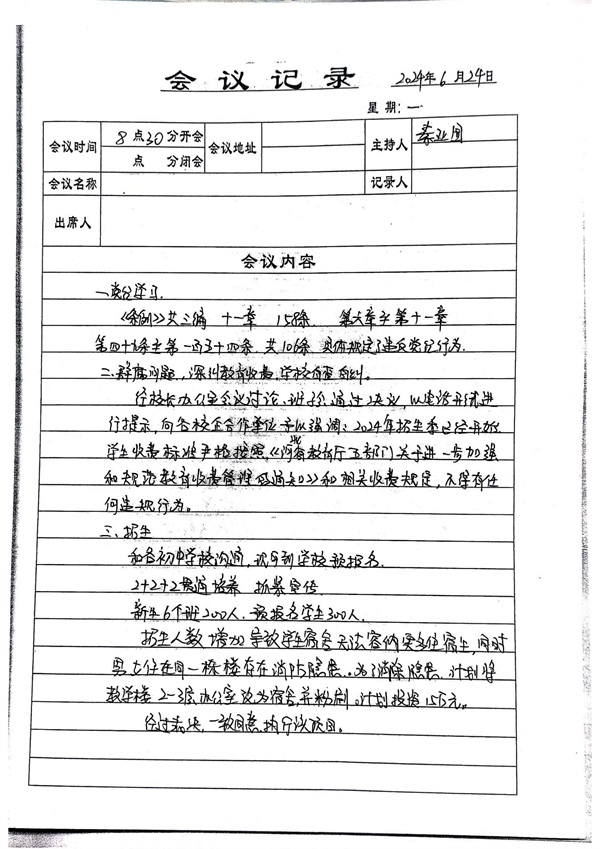 会议记录 2024年6月24日
星期:一
会议时间 8点30分开会 会议地址 主持人
点 分闭会
会议名称 记录人
出席人
会议内容
一、党纪学习
《条例》共三编 十一章 158条 第六章至第十一章
第四十九条至第一百五十四条 共106条 具体规定了违反党纪行为.
二、群腐问题, 深纠教育收费, 学校自查自纠.
行校长办公室会议讨论, 班子通过决议, 以电话形式进
行提示, 向各校企合作单位予以强调: 2024年招生季已经开始
学生收费标准严格按照《河南省教育厅五部门关于进一步加强
和规范教育收费管理的通知》和相关收费规定, 不得有任
何违规行为。
三、招生
和各初中学校沟通, 学校预报名.
2+2+2贯通培养 抓紧宣传
新生6个班200人. 预报名学生300人.
招生人数增加导致学生宿舍无法容纳更多住宿生, 同时
男女住在同一栋楼存在消防隐患. 为了消除隐患, 计划将
教学楼2-3层办公室改为宿舍, 并粉刷. 计划投资15万元。
经过表决, 一致同意执行该项目。